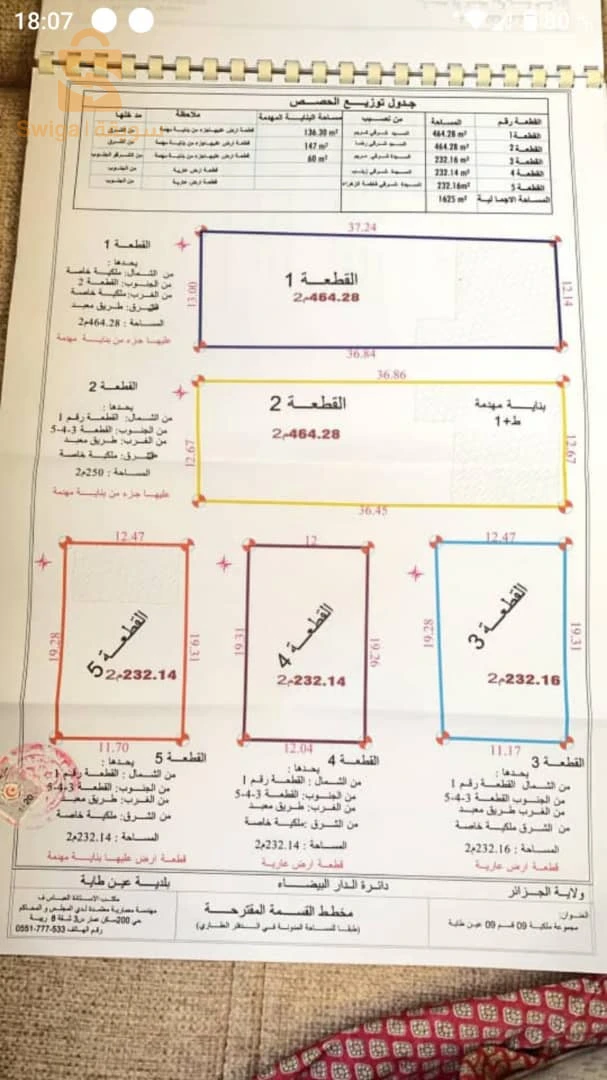 18:07
80
Swiga
جدول توزيع الحصص
القطعة رقم المساحة من نصيب مساحة البناية المهدمة ملاحظة مدخلها
القطعة 1 464.28 m² 136.30 m² قطعة ارض عليها جزء من بناية مهدمة من الشرق
القطعة 2 464.28 m² 147 m² قطعة ارض عليها جزء من بناية مهدمة من الشرق
القطعة 3 232.16 m² 60 m² قطعة ارض عليها جزء من بناية مهدمة
القطعة 4 232.14 m² قطعة ارض عارية من الجنوب
القطعة 5 232.16m² قطعة ارض عارية من الجنوب
المساحة الاجمالية 1625 m²
القطعة 1
يحدها :
من الشمال: ملكية خاصة
من الجنوب: القطعة 2
من الغرب: ملكية خاصة
طريق معبد
المساحة : 464.28م2
عليها جزء من بناية مهدمة
37.24
13.00
القطعة 1
464.28م2
12.14
36.84
القطعة 2
يحدها :
من الشمال: القطعة رقم 1
من الجنوب: القطعة 3-4-5
من الغرب: طريق معبد
ملكية خاصة
المساحة : 250م2
عليها جزء من بناية مهدمة
36.86
12.67
القطعة 2
464.28م2
بناية مهدمة
ط+1
12.67
36.45
12.47
19.28
القطعة 5
232.14م2
19.31
11.70
12
19.31
القطعة 4
232.14م2
19.26
12.04
12.47
19.28
القطعة 3
232.16م2
19.31
11.17
القطعة 5
يحدها :
من الشمال : القطعة رقم 1
من الجنوب: القطعة 3-4-5
من الغرب: طريق معبد
من الشرق: ملكية خاصة
المساحة : 232.14م2
قطعة ارض عليها بناية مهدمة
القطعة 4
يحدها :
من الشمال : القطعة رقم 1
من الجنوب: القطعة 3-4-5
من الغرب: طريق معبد
من الشرق :ملكية خاصة
المساحة : 232.14م2
قطعة ارض عارية
القطعة 3
يحدها :
من الشمال القطعة رقم 1
من الجنوب القطعة 3-4-5
من الغرب طريق معبد
من الشرق ملكية خاصة
المساحة : 232.16م2
قطعة ارض عارية
ولاية الجزائر دائرة الدار البيضاء بلدية عين طاية
العنوان:
مجموعة ملكية 09 قسم 09 عين طاية
مخطط القسمة المقترحة
(طبقا للمساحة المدونة في الدفتر العقاري)
مكتب الاستاذة العباس ف
مهندسة معمارية معتمدة لدى المجلس و المحاكم
رقم الهاتف 0551-777-533